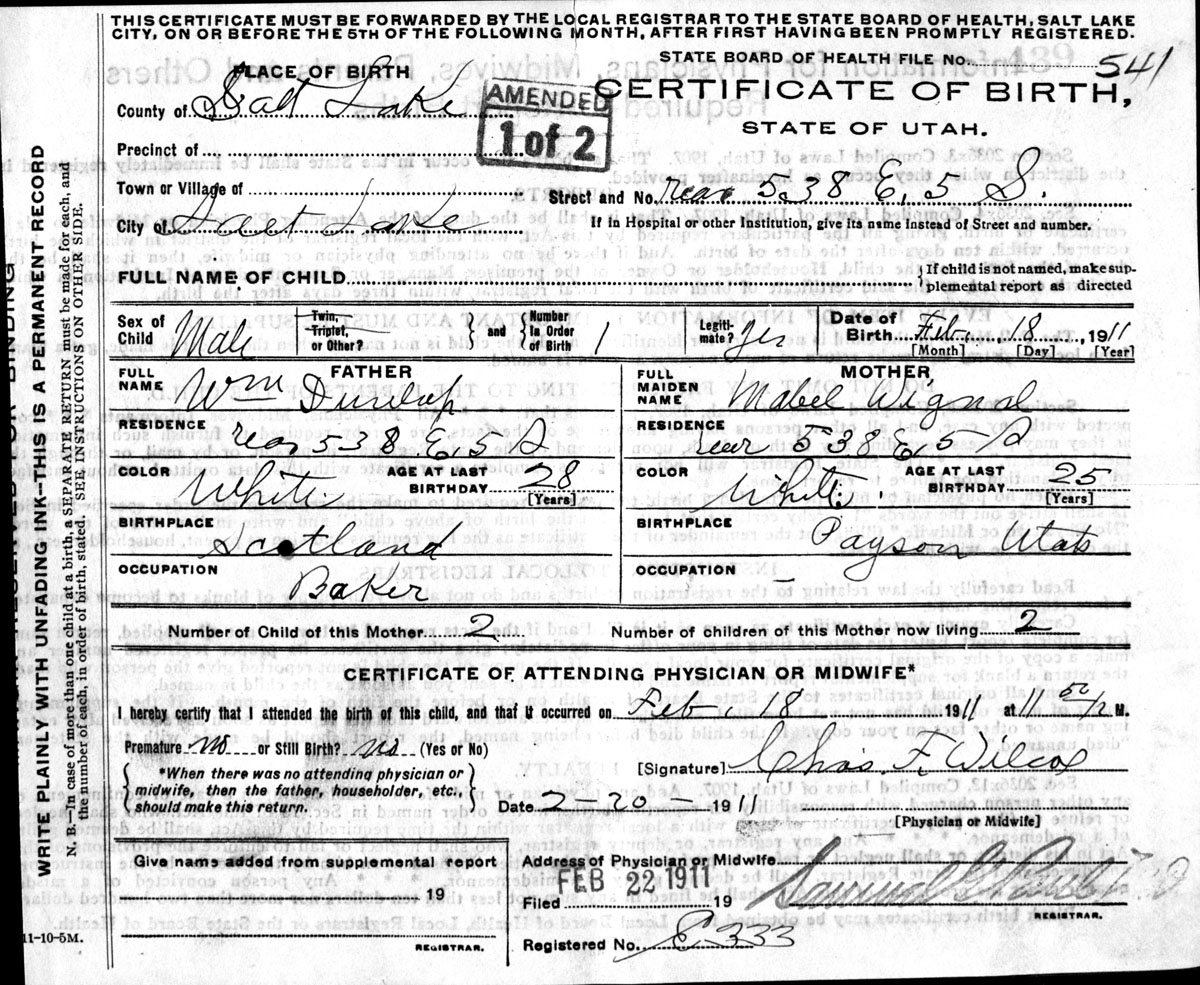 THIS CERTIFICATE MUST BE FORWARDED BY THE LOCAL REGISTRAR TO THE STATE BOARD OF HEALTH, SALT LAKE
CITY, ON OR BEFORE THE 5TH OF THE FOLLOWING MONTH, AFTER FIRST HAVING BEEN PROMPTLY REGISTERED.
STATE BOARD OF HEALTH FILE No. 541
PLACE OF BIRTH
County of Salt Lake
AMENDED
1 of 2
CERTIFICATE OF BIRTH,
STATE OF UTAH.
Precinct of
Town or Village of
Street and No. rear 538 E, 5 S.
City of Salt Lake
If in Hospital or other Institution, give its name instead of Street and number.
FULL NAME OF CHILD
If child is not named, make sup-
plemental report as directed
Sex of Child Male
Twin, Triplet, or Other?
and
Number in Order of Birth 1
Legiti-mate? Yes
Date of Birth Feb, 18, 1911
[Month] [Day] [Year]
FATHER
FULL NAME Wm Dunlap
RESIDENCE rear 538 E, 5 S
COLOR White
AGE AT LAST BIRTHDAY 28
[Years]
BIRTHPLACE Scotland
OCCUPATION Baker
MOTHER
FULL MAIDEN NAME Mabel
RESIDENCE rear 538 E, 5
COLOR White
AGE AT LAST BIRTHDAY 25
[Years]
BIRTHPLACE Payson Utah
OCCUPATION —
Number of Child of this Mother 2
Number of children of this Mother now living 2
CERTIFICATE OF ATTENDING PHYSICIAN OR MIDWIFE*
I hereby certify that I attended the birth of this child, and that it occurred on Feb, 18 1911 at 11 50 M.
Premature no or Still Birth? no (Yes or No)
*When there was no attending physician or
midwife, then the father, householder, etc.,
should make this return.
[Signature] Chas. F. Wilcox
Date 2-20- 1911
[Physician or Midwife]
Give name added from supplemental report
19
REGISTRAR.
Address of Physician or Midwife
FEB 22 1911
Filed 19
Samuel
REGISTRAR.
Registered No. 333
WRITE PLAINLY WITH UNFADING INK—THIS IS A PERMANENT RECORD
N. B.—In case of more than one child at a birth, a SEPARATE RETURN must be made for each, and
the number of each, in order of birth, stated. SEE INSTRUCTIONS ON OTHER SIDE.
11-10-5M.